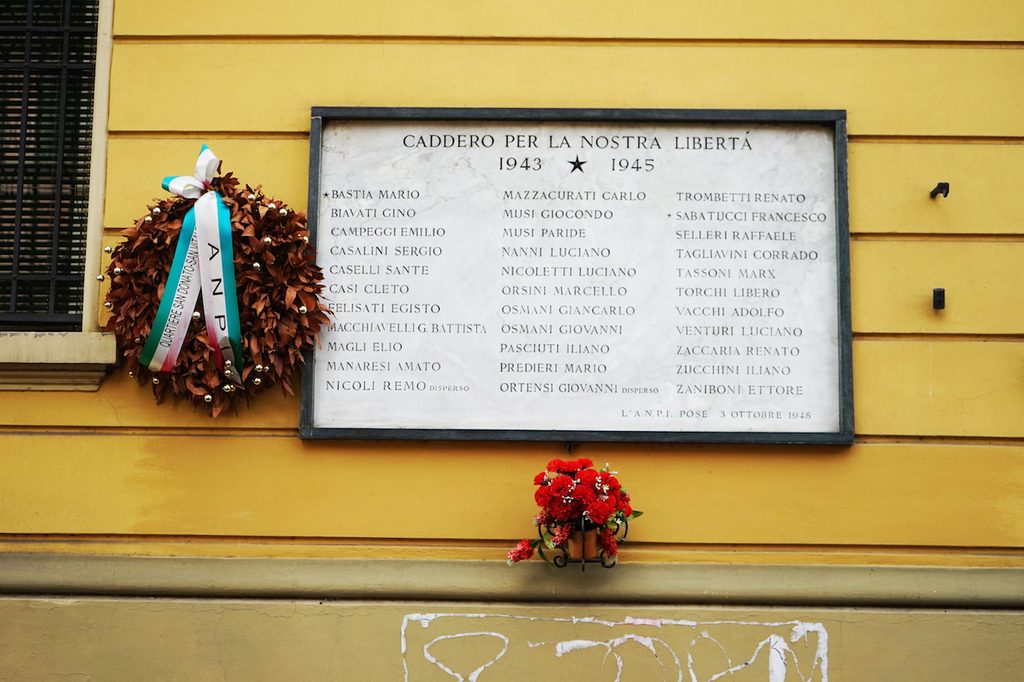 CADDERO PER LA NOSTRA LIBERTÁ
1943 ★ 1945
★BASTIA MARIO
BIAVATI GINO
CAMPEGGI EMILIO
CASALINI SERGIO
CASELLI SANTE
CASI CLETO
FELISATI EGISTO
MACCHIAVELLI G. BATTISTA
MAGLI ELIO
MANARESI AMATO
NICOLI REMO DISPERSO
MAZZACURATI CARLO
MUSI GIOCONDO
MUSI PARIDE
NANNI LUCIANO
NICOLETTI LUCIANO
ORSINI MARCELLO
OSMANI GIANCARLO
OSMANI GIOVANNI
PASCIUTI ILIANO
PREDIERI MARIO
ORTENSI GIOVANNI DISPERSO
TROMBETTI RENATO
★SABATUCCI FRANCESCO
SELLERI RAFFAELE
TAGLIAVINI CORRADO
TASSONI MARX
TORCHI LIBERO
VACCHI ADOLFO
VENTURI LUCIANO
ZACCARIA RENATO
ZUCCHINI ILIANO
ZANIBONI ETTORE
L'A.N.P.I. POSE 3 OTTOBRE 1948
QUARTIERE SAN DONATO-SAN
A N P